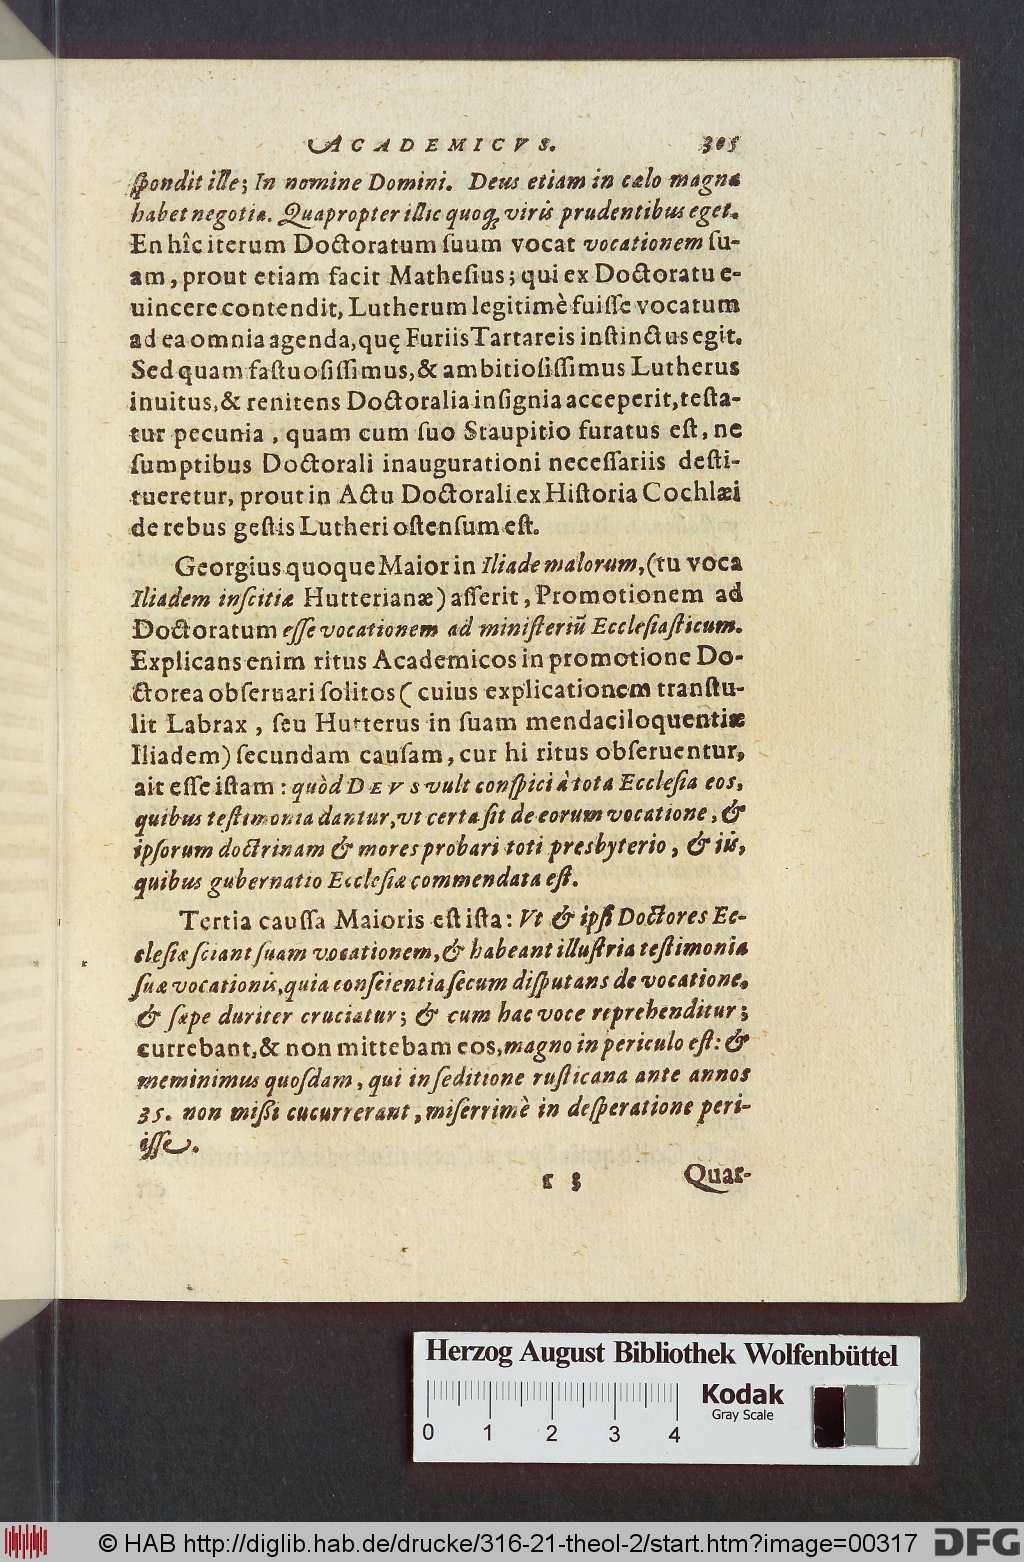 ACADEMICVS. 305
ſpondit ille; In nomine Domini. Deus etiam in cælo magna
habet negotia. Quapropter illic quoq́; viris prudentibus eget.
En hîc iterum Doctoratum ſuum vocat vocationem ſu-
am, prout etiam facit Matheſius; qui ex Doctoratu e-
uincere contendit, Lutherum legitimè fuiſſe vocatum
ad ea omnia agenda, quę Furiis Tartareis inſtinctus egit.
Sed quam faſtuoſiſſimus, & ambitioſiſſimus Lutherus
inuitus, & renitens Doctoralia inſignia acceperit, teſta-
tur pecunia, quam cum ſuo Staupitio furatus eſt, ne
ſumptibus Doctorali inaugurationi neceſſariis deſti-
tueretur, prout in Actu Doctorali ex Hiſtoria Cochlæi
de rebus geſtis Lutheri oſtenſum eſt.
Georgius quoque Maior in Iliade malorum, (tu voca
Iliadem inſcitiæ Hutterianæ) aſſerit, Promotionem ad
Doctoratum eſſe vocationem ad miniſteriũ Eccleſiaſticum.
Explicans enim ritus Academicos in promotione Do-
ctorea obſeruari ſolitos (cuius explicationem tranſtu-
lit Labrax, ſeu Hutterus in ſuam mendaciloquentiæ
Iliadem) ſecundam cauſam, cur hi ritus obſeruentur,
ait eſſe iſtam: quòd DEVS vult conſpici à tota Eccleſia eos,
quibus teſtimonia dantur, vt certa ſit de eorum vocatione, &
ipſorum doctrinam & mores probari toti presbyterio, & iis,
quibus gubernatio Eccleſiæ commendata eſt.
Tertia cauſſa Maioris eſt iſta: Vt & ipſi Doctores Ec-
cleſiæ ſciant ſuam vocationem, & habeant illuſtria teſtimonia
ſuæ vocationis, quia conſcientia ſecum diſputans de vocatione,
& ſæpe duriter cruciatur; & cum hac voce reprehenditur;
currebant, & non mittebam eos, magno in periculo eſt: &
meminimus quoſdam, qui in ſeditione ruſticana ante annos
35. non miſſi cucurrerant, miſerrimè in deſperatione peri-
iſſe.
r 3 Quar-
Herzog August Bibliothek Wolfenbüttel
Kodak
Gray Scale
0 1 2 3 4
© HAB http://diglib.hab.de/drucke/316-21-theol-2/start.htm?image=00317
DFG